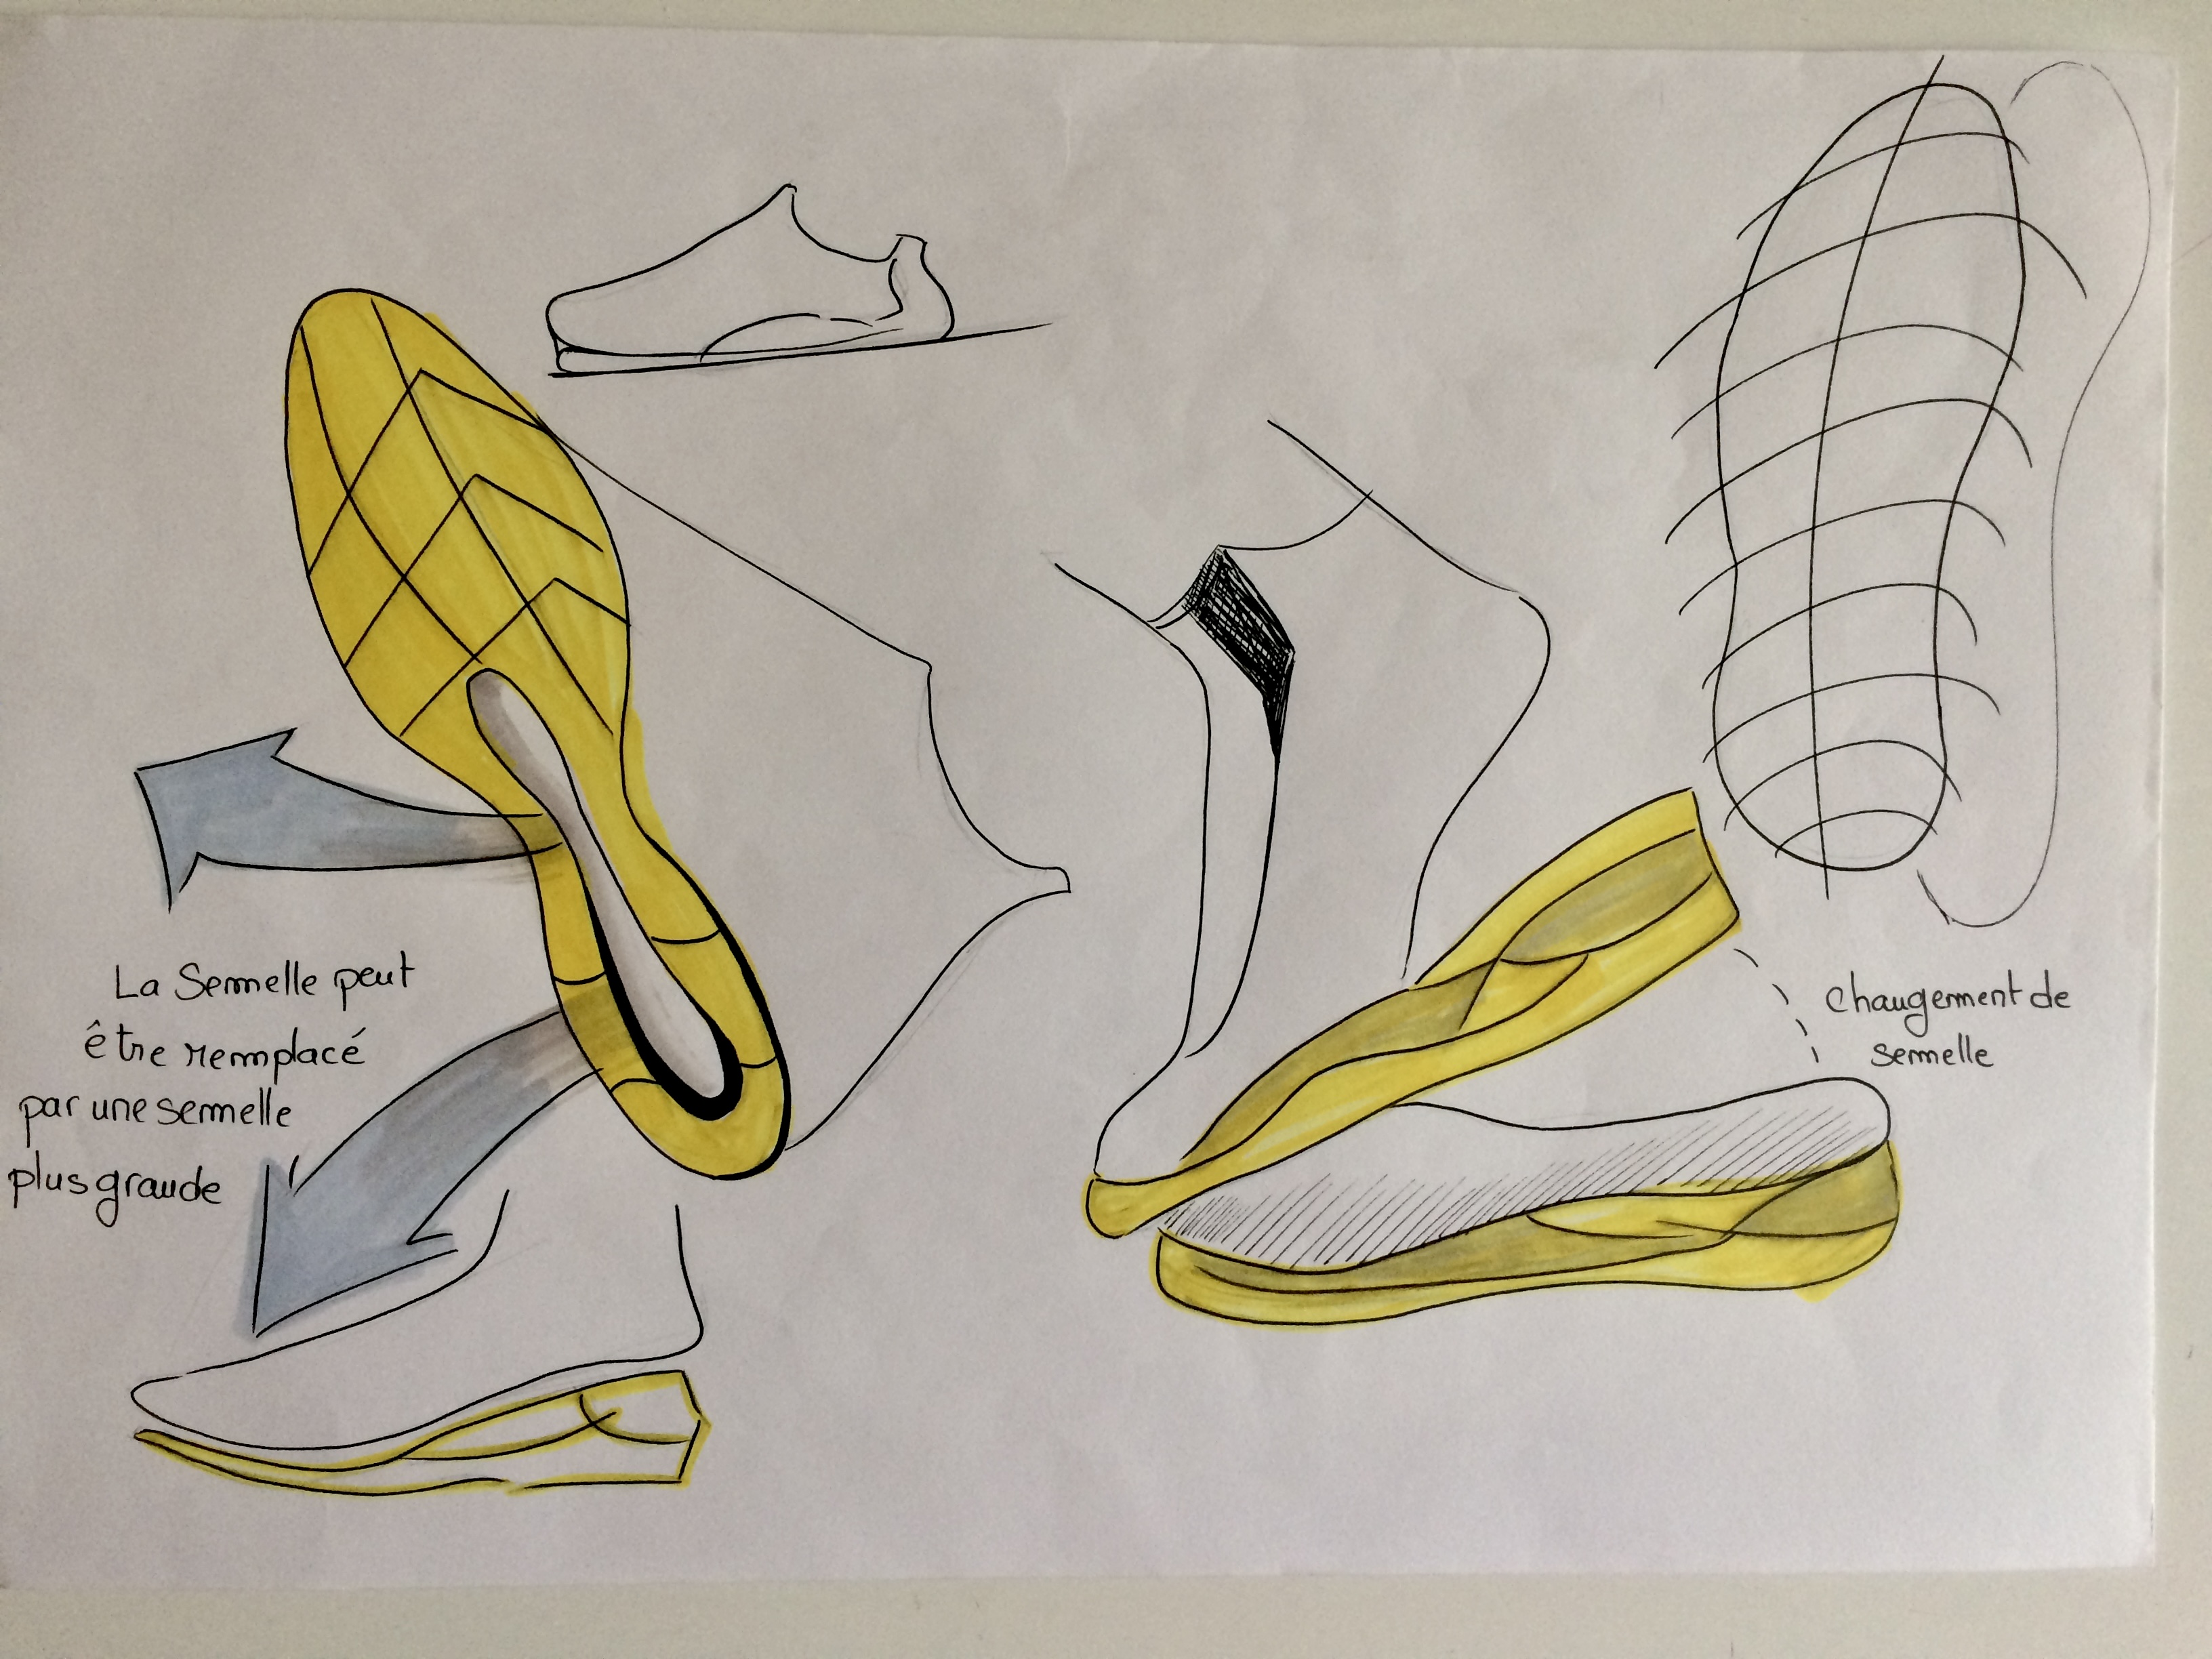 La Semelle peut
être remplacé
par une semelle
plus grande
Changement de
semelle